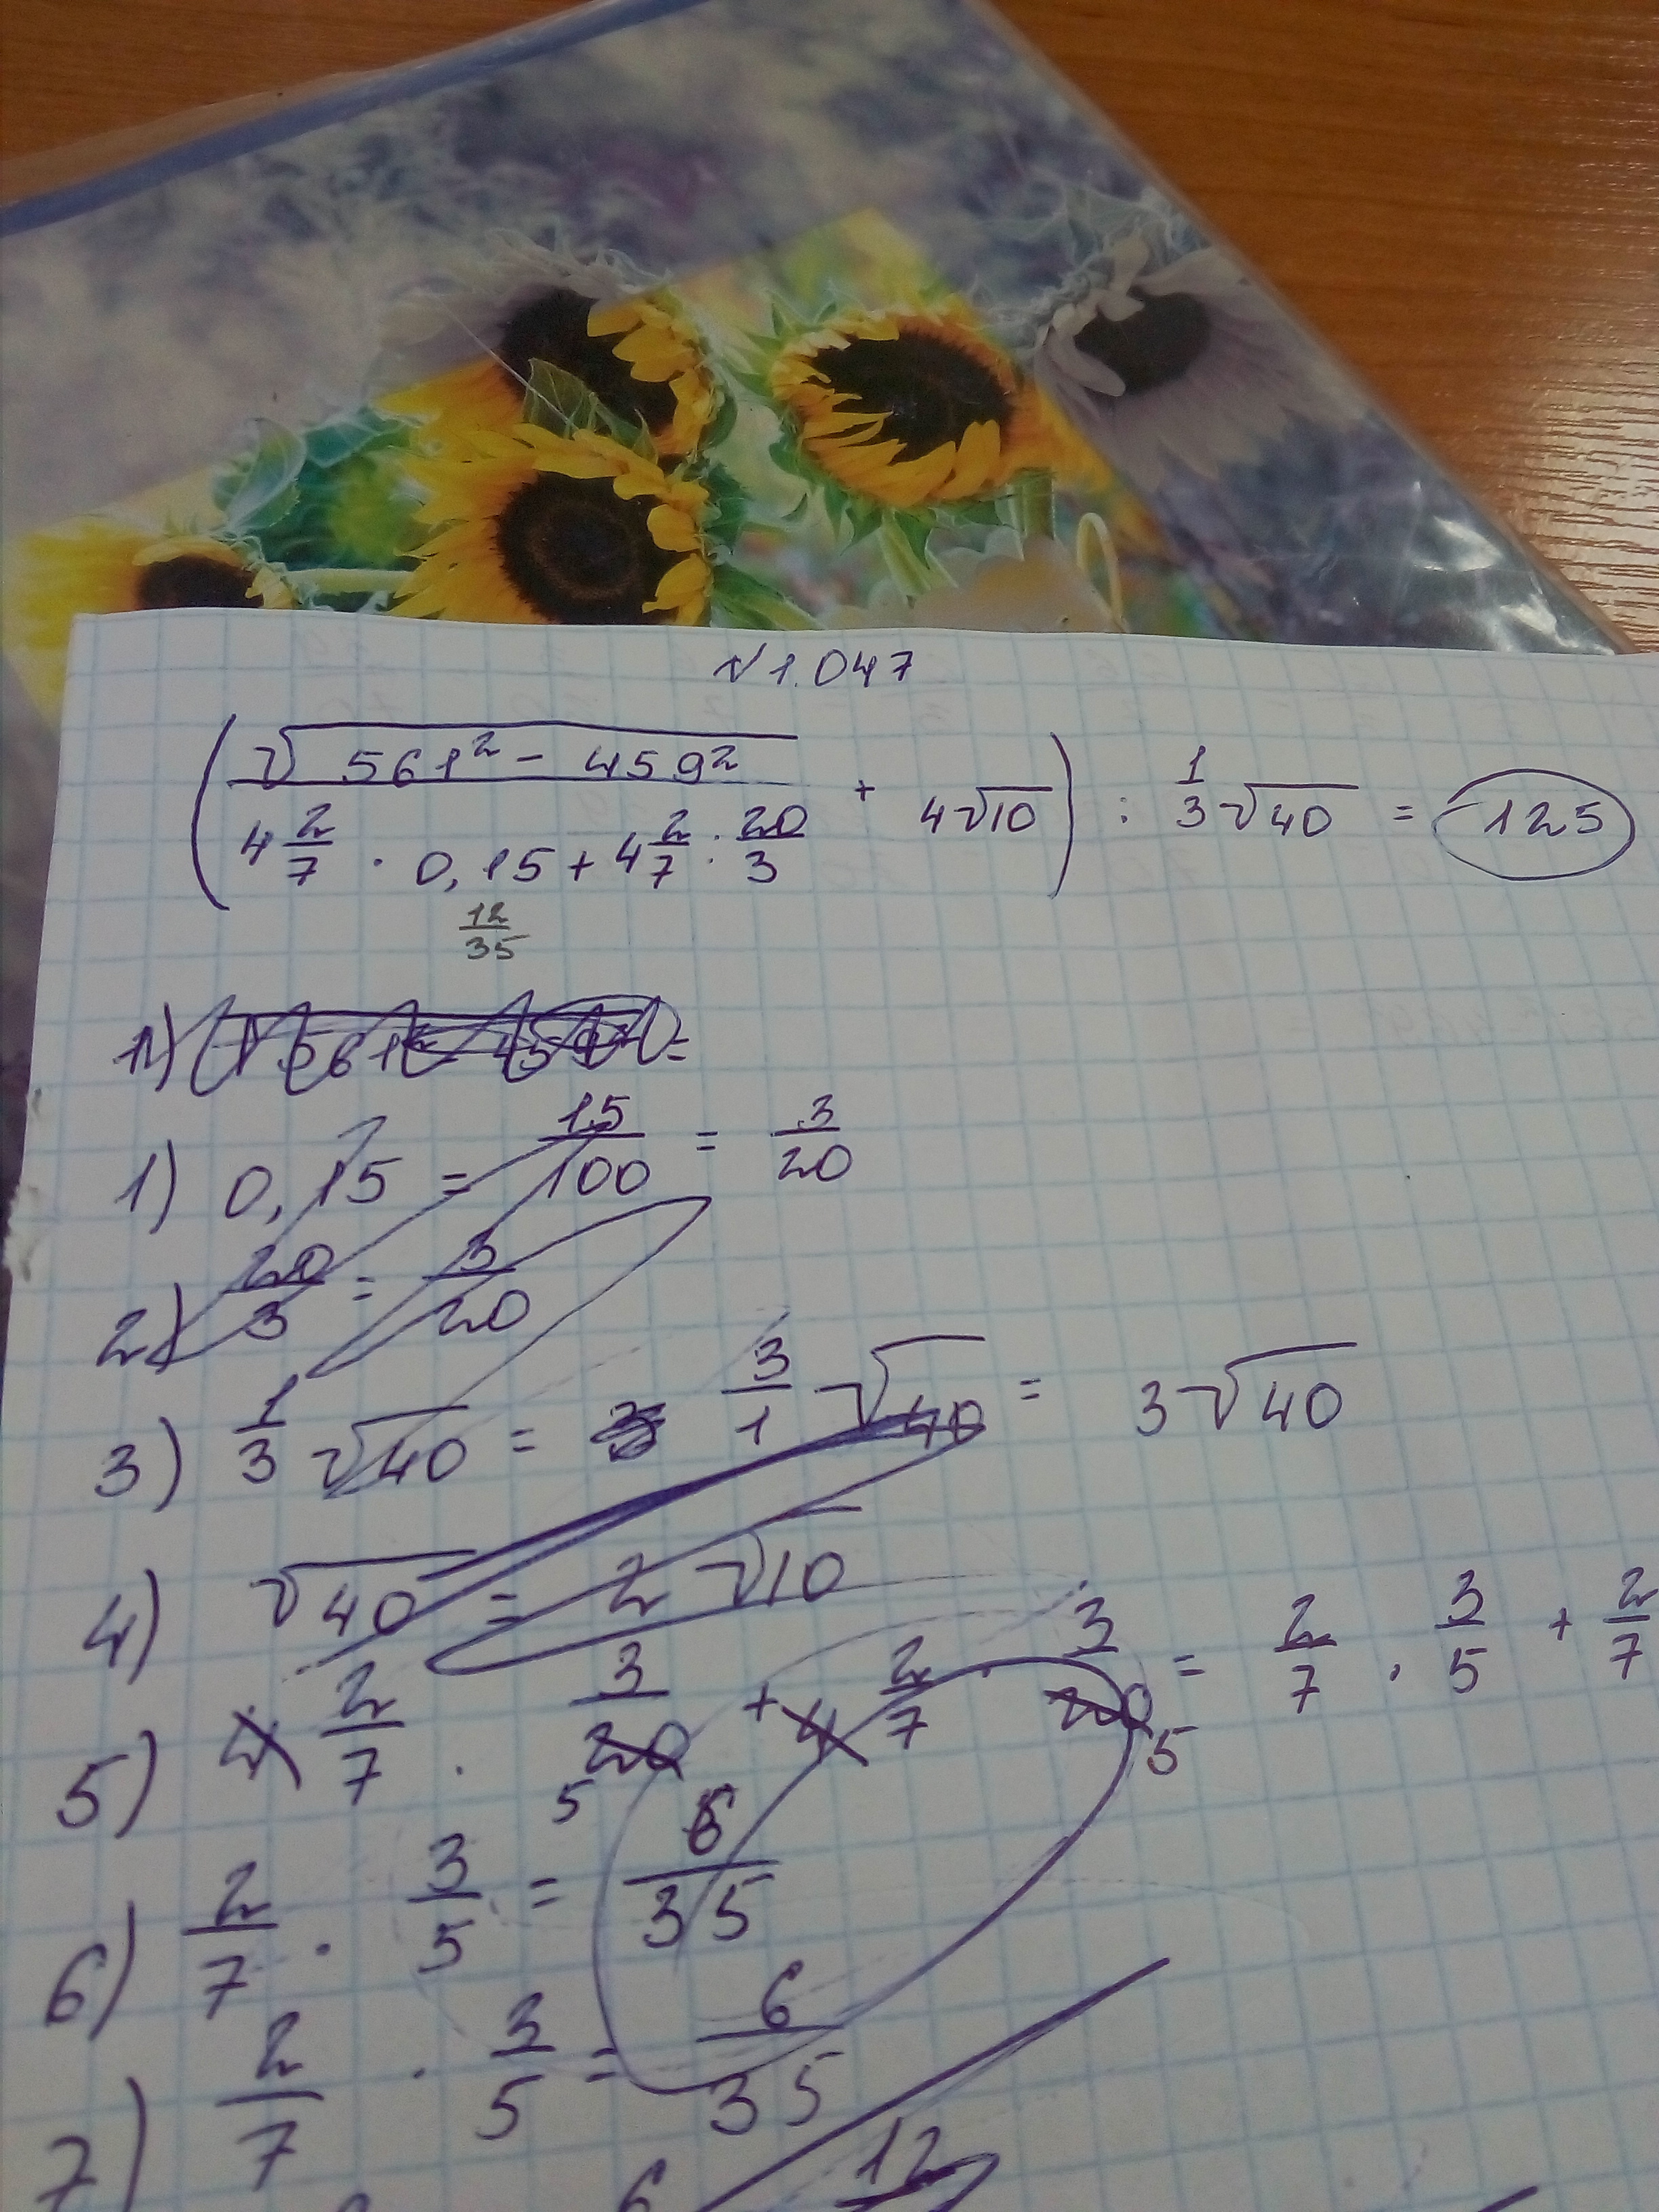 № 1.047
(√(561² - 459²) / (4 2/7 · 0,15 + 4 2/7 : 20/3) + 4√10) : 1/3 √40 = 125
12/35
1) √561² - 459² =
1) 0,15 = 15/100 = 3/20
2) 20/3 = 3/20
3) 1/3 √40 = 3/1 √40 = 3√40
4) √40 = 2√10
5) 4 2/7 · 3/20 5 + 4 2/7 · 3/20 5 = 2/7 · 3/5 + 2/7
6) 2/7 · 3/5 = 6/35
7) 2/7 · 3/5 = 6/35
6 12